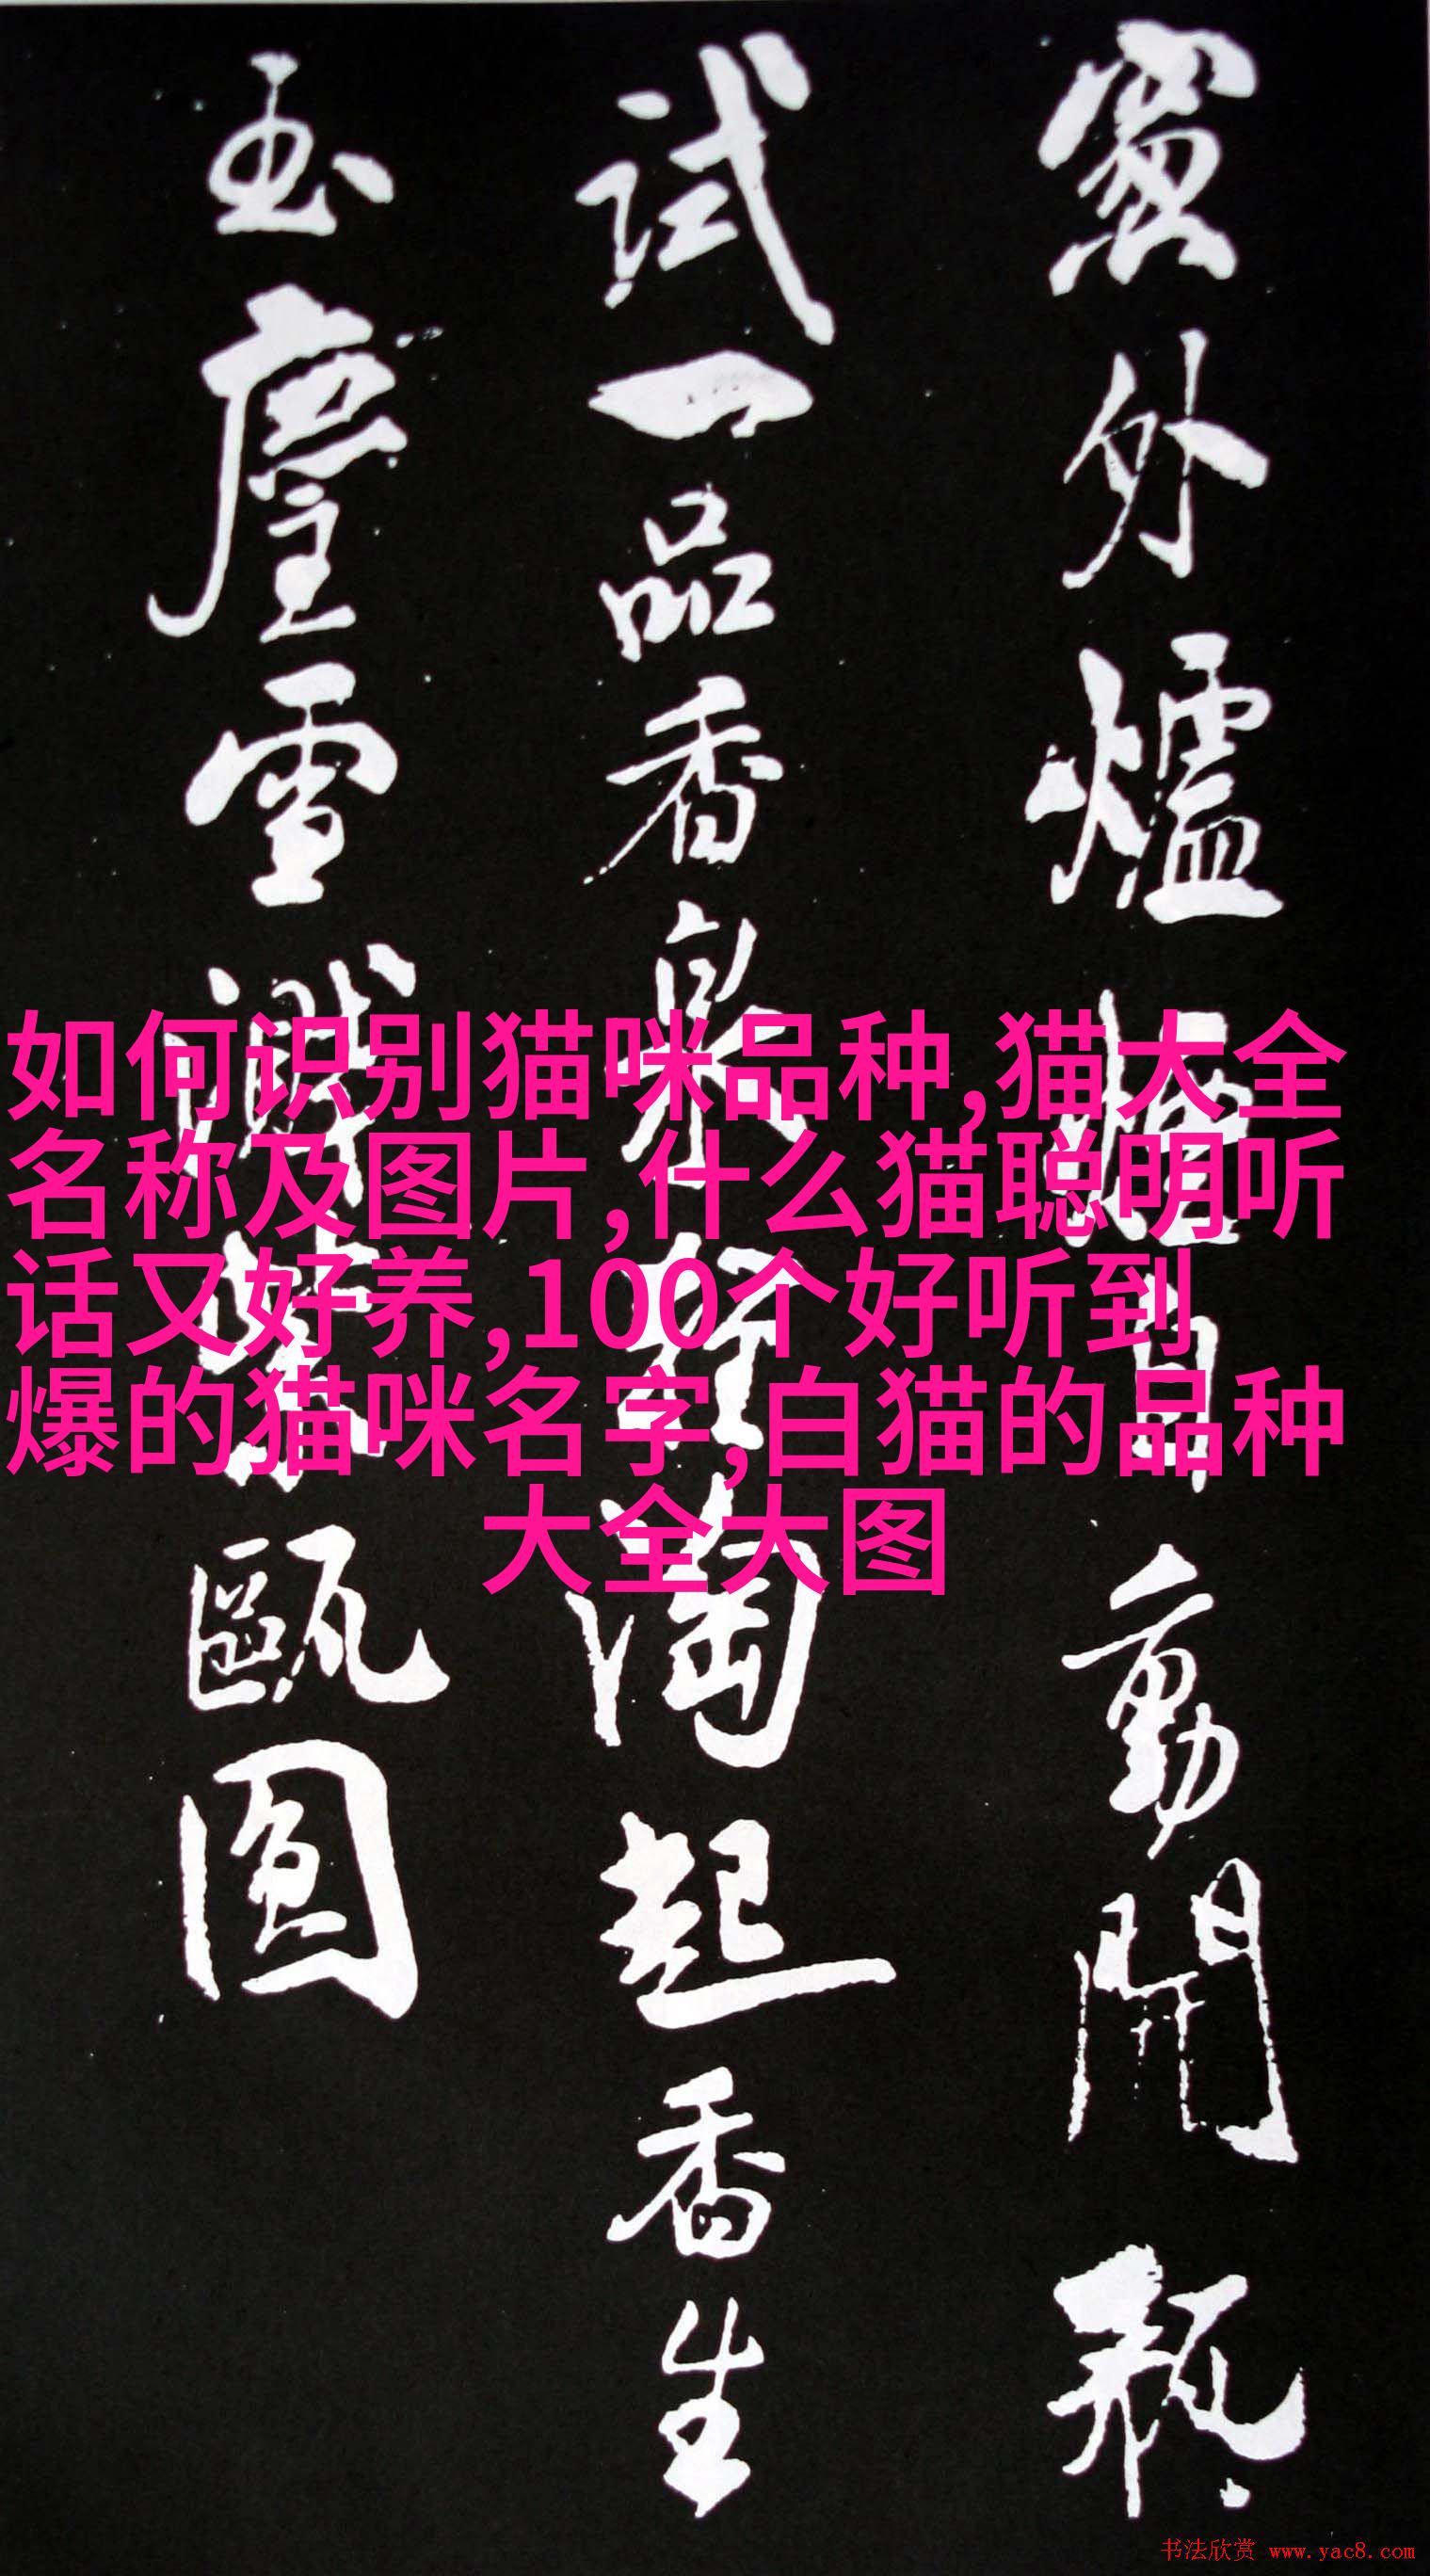 窗外爐煙自動開瓶
試一品香泉輕濤起香生
玉塵雪濺紫甌圓
如何识别猫咪品种,猫大全
名称及图片,什么猫聪明听
话又好养,100个好听到
爆的猫咪名字,白猫的品种
大全大图
书法欣赏 www.yac8.com